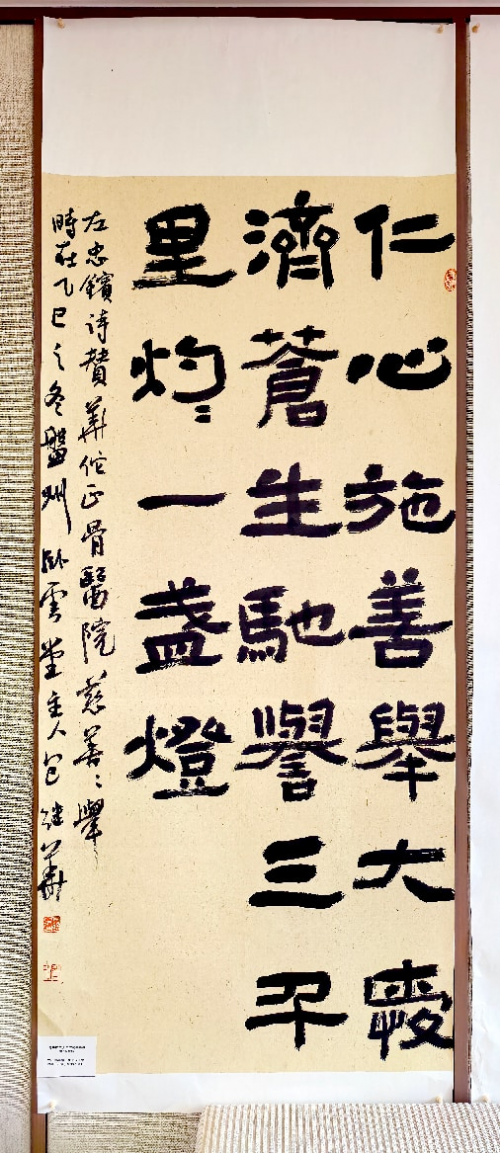 仁心施善舉大愛
濟蒼生馳譽三千
里灼〻一盞燈
左忠鑌詩贊華佗正骨醫院慈善之舉
時在乙巳之冬盤州臥雲堂主人包继華